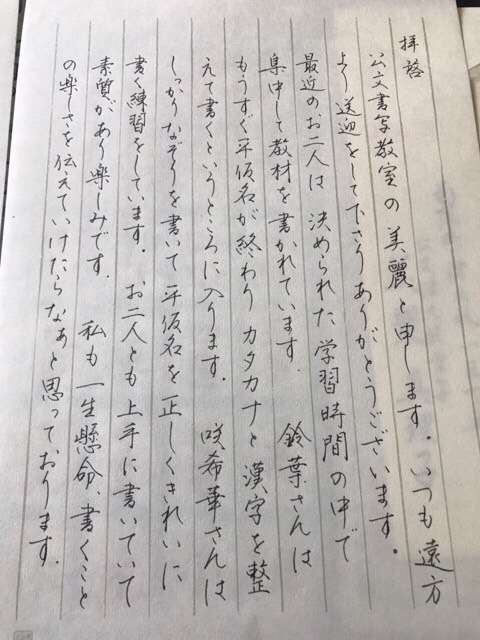 拝啓
公文書写教室の美麗と申します。いつも遠方
より送迎をして下さりありがとうございます。
最近のお二人は決められた学習時間の中で
集中して教材を書かれています。鈴葉さんは
もうすぐ平仮名が終わりカタカナと漢字を整
えて書くというところに入ります。咲希華さんは
しっかりなぞりを書いて平仮名を正しくきれいに
書く練習をしています。お二人とも上手に書いていて
素質があり楽しみです。私も一生懸命、書くこと
の楽しさを伝えていけたらなぁと思っております。